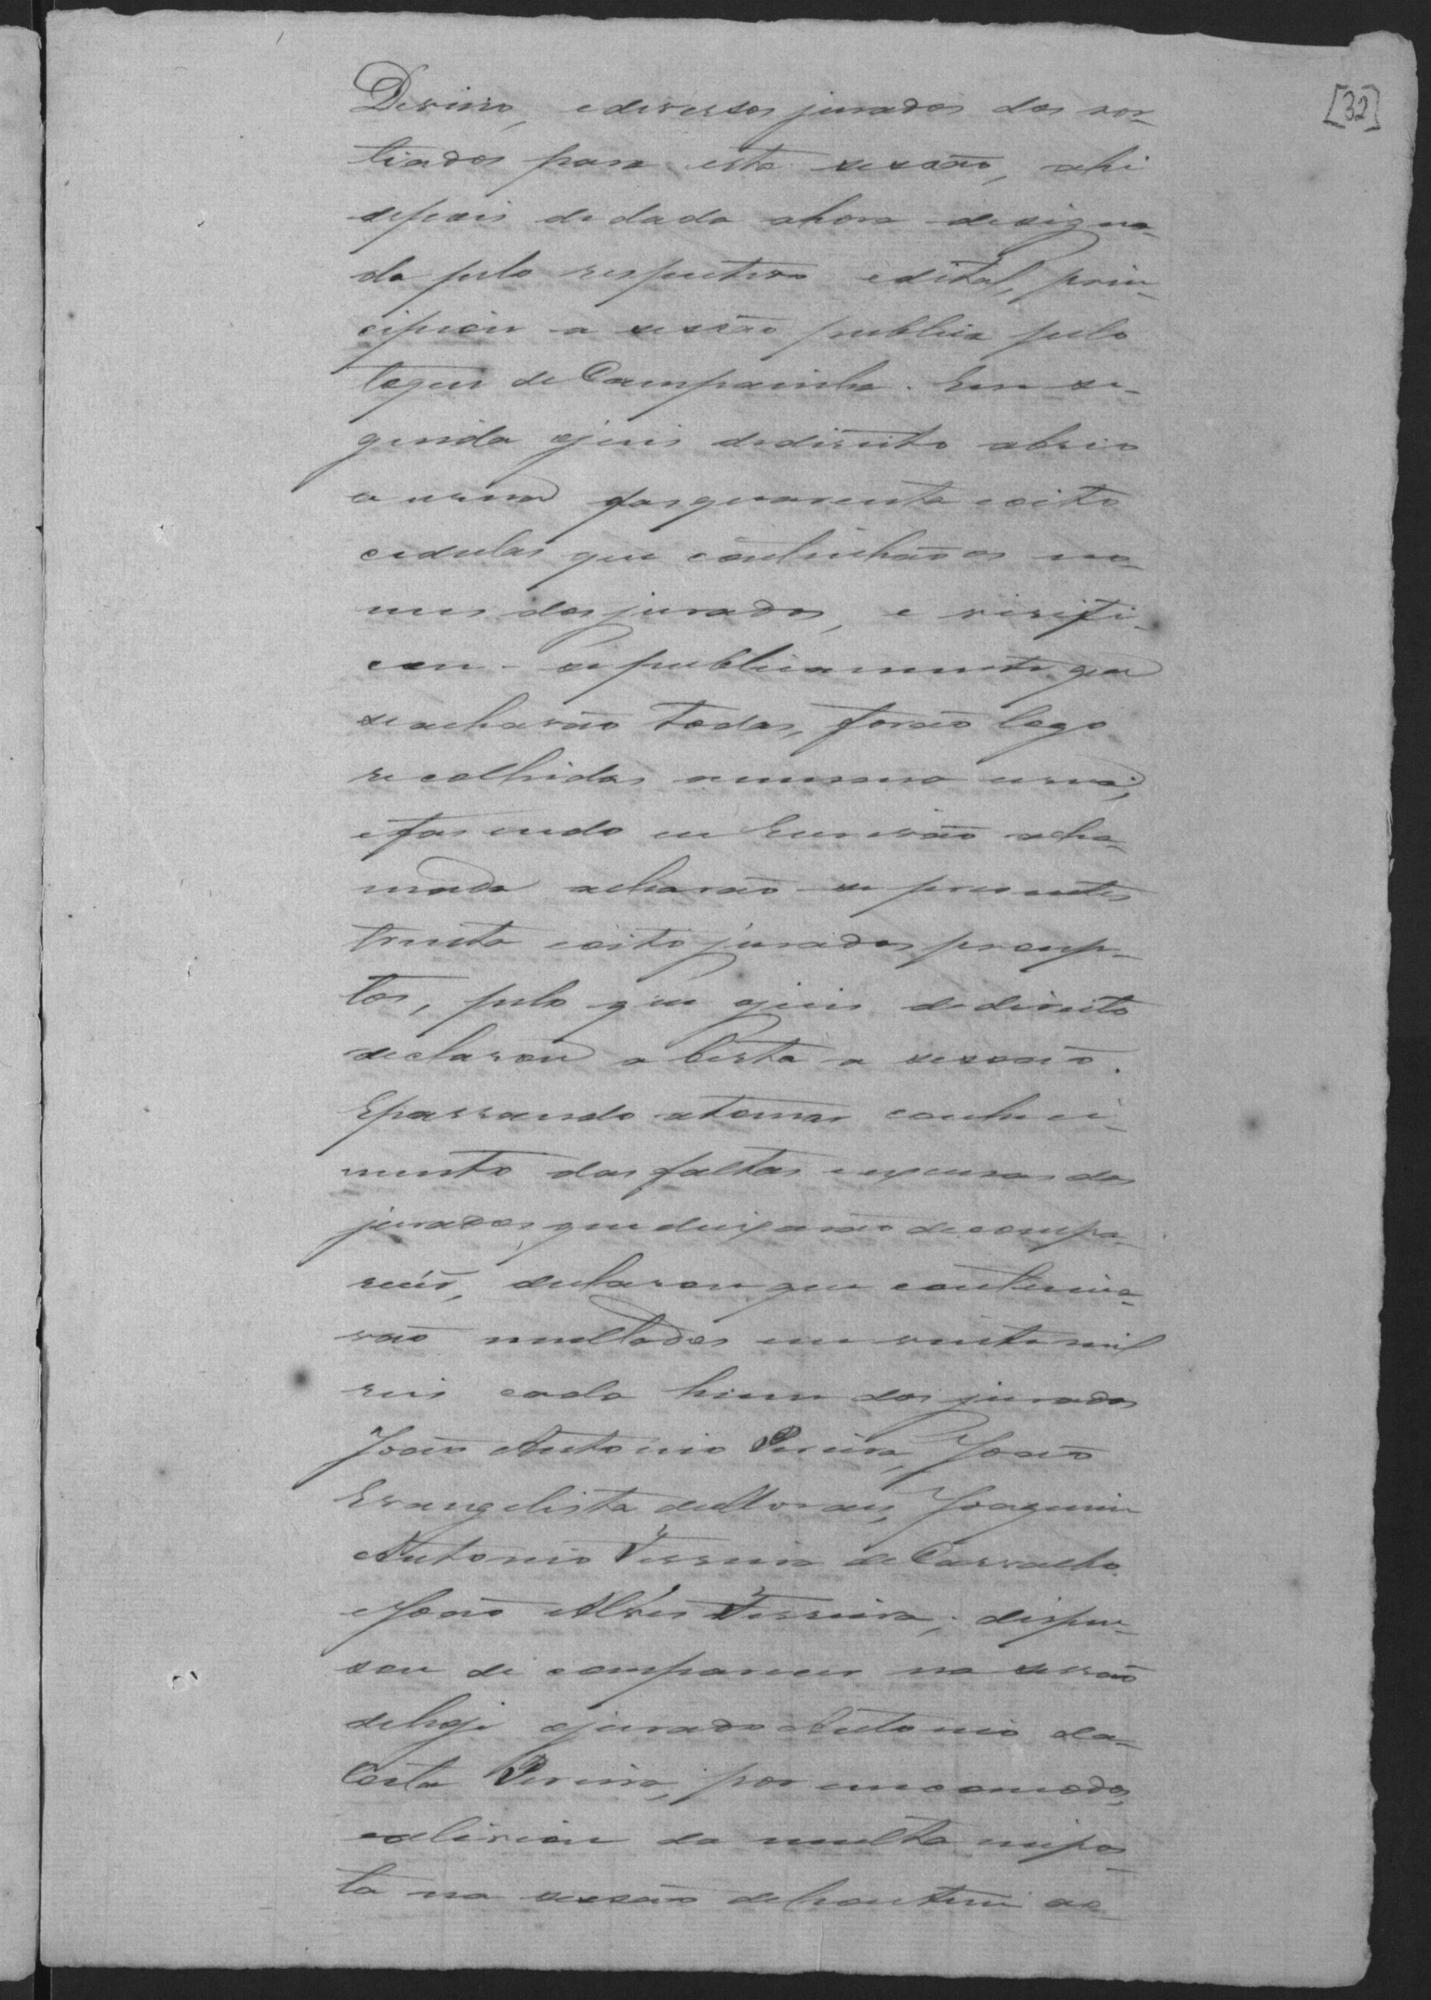 [32]
Divino, e diversos jurados dos sor-
tiados para esta sessão, ahi
depois de dada ahora designa-
da pelo respectivo edital, prin-
cipiou a sessão publica pelo
toque de Campainha. Em se-
guida ojuis dedireito abrio
a urna das quarenta eoito
cedulas que continhão os no-
mes dos jurados, e virifi-
cou-se publicamente que
se acharão todas, forão logo
recolhidas amesma urna,
efasendo o Escrivão acha-
mada acharão-se presentes
trinta eoito jurados promp-
tos, pelo que ojuis dedireito
declarou a berta a sessão.
Epassando atomar conheci-
mento das faltas eexcusas dos
jurados que deixarão decompa-
recer, declarou que continua-
vão multados em vinte mil
reis cada hum dos jurados
João Antonio Pereira, João
Evangelista deMoraes, Joaquim
Antonio Ferreira de Carvalho
eJoão Alves Ferreira; dispen-
sou de comparecer na sessão
dehoje ojurado Antonio da
Costa Pereira, por encomodos,
ealiviou da multa impos-
ta na sessão dehontem ao